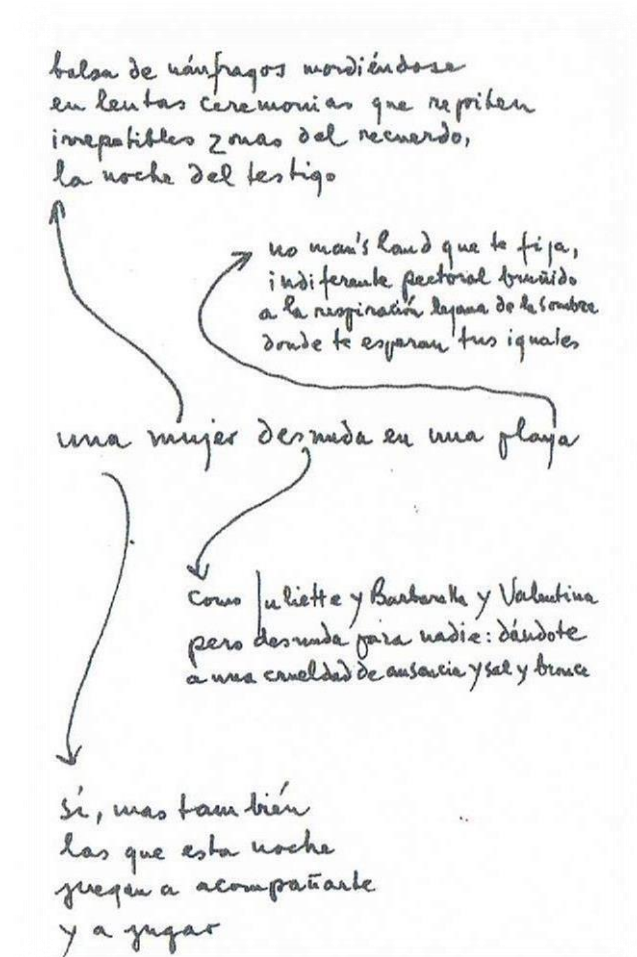 balsa de náufragos mordiéndose
en lentas ceremonias que repiten
irrepetibles zonas del recuerdo,
la noche del testigo
no man's land que te fija,
indiferente pectoral bruñido
a la respiración lejana de la sombra
donde te esperan tus iguales
una mujer desnuda en una playa
como Juliette y Barbarella y Valentina
pero desnuda para nadie: dándote
a una crueldad de ausencia y sal y bronce
sí, mas también
las que esta noche
juegan a acompañarte
y a jugar